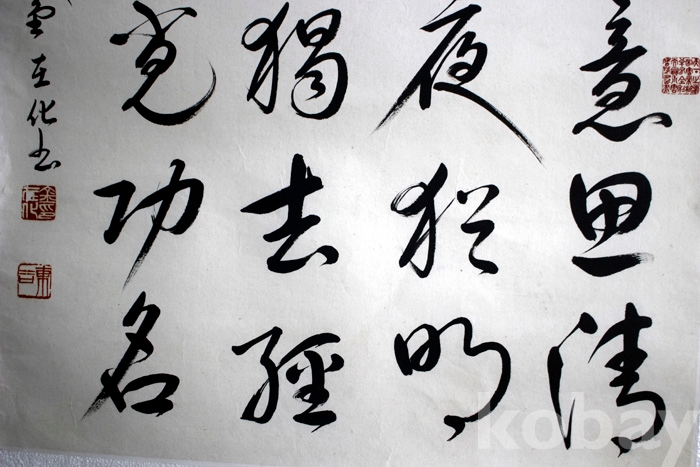 意思清
夜猶明
獨去經
覓功名
在化书
kobay